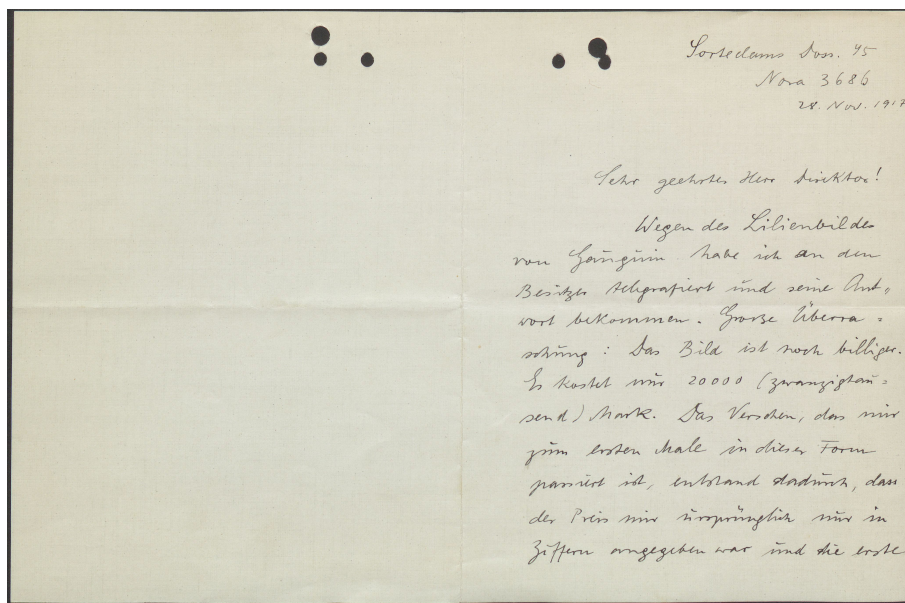 Sortedams Doss. 45
Nora 3686
28. Nov. 1917
Sehr geehrter Herr Direktor!
Wegen des Lilienbildes
von Gauguin habe ich an den
Besitzer telegrafiert und seine Ant-
wort bekommen. Große Überra-
schung: Das Bild ist noch billiger.
Es kostet nur 20000 (zwanzigtau-
send) Mark. Das Versehen, das mir
zum ersten Male in dieser Form
passiert ist, entstand dadurch, dass
der Preis mir ursprünglich nur in
Ziffern angegeben war und die erste